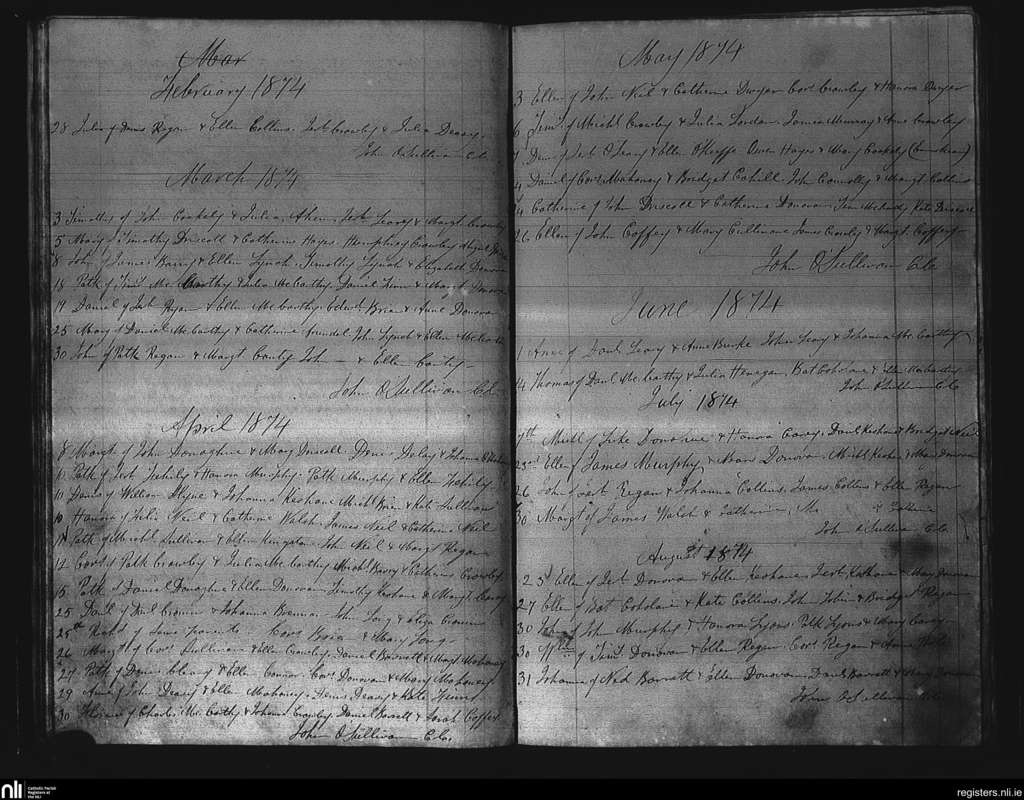 Mar
February 1874
28 Julia of Denis Regan & Ellen Collins. Jerh Crowley & Julia Deasy.
John O Sullivan C.C.
March 1874
3 Timothy of John Coakely & Julia Ahern. Jerh Leary & Margt Crowley
5 Mary of Timothy Driscoll & Catherine Hayes. Humphrey Crowley
8 John of James Barry & Ellen Lynch. Timothy Lynch & Elizabeth Donovan
18 Patk of Timt McCarthy & Julia McCarthy. Daniel & Margt Donovan
19 Daniel of Jerh Ryan & Ellen McCarthy. Edwd Brien & Anne Donovan
25 Mary of Daniel McCarthy & Catherine Arundel. John Lynch & Ellen McCarthy
30 John of Patk Regan & Margt Canty John — & Ellen Canty
John O Sullivan C.C.
April 1874
8 Margt of John Donoghue & Mary Driscoll. Denis Daly & Johanna
10 Patk of Jerh & Honora Murphy. Patk Murphy & Ellen
10 Denis of William Flyne & Johanna Keohane Michl Brien & Kate Sullivan
10 Honora of Felix Neil & Catherine Walsh. James Neil & Catherine Neil
11 Patk of Michl Sullivan & Ellen Kingston. John Neil & Margt Regan
12 Cors of Patk Crowley & Julia McCarthy Michl Barry & Catherine Crowley
15 Patk of Daniel Donoghue & Ellen Donovan Timothy Keohane & Margt Carey
25 Danl of Danl Cronin & Johanna Brennan John Long & Eliza Cronin
25th Richd of same parents Cors Brien & Mary Long
26 Margt of Cors Sullivan & Ellen Crowley. Daniel Barrett & Margt Mahoney
27 Patk of Denis Cleary & Ellen Connor. Cors Donovan & Mary Mahoney
29 Anne of John Deasy & Ellen Mahoney. Denis Deasy & Kate
30 of Charles McCarthy & Johanna Crowley Daniel Barrett & Sarah Coffey
John O Sullivan C.C.
May 1874
3 Ellen of John Neil & Catherine Dwyer Cors Crowley & Honora Dwyer
6 Jerh of Michl Crowley & Julia Jordan. James Murray & Anne Crowley
7 Denis of Jerh O Leary & Ellen O Keeffe Owen Hayes & Mary Coakely
Daniel of Cors Mahoney & Bridget Cahill. John Connolly & Margt Collins
14 Catherine of John Driscoll & Catherine Donovan. Tim McCarthy Kate Driscoll
26 Ellen of John Coffey & Mary Cullinane James Crowley & Margt Coffey
John O Sullivan C.C.
June 1874
1 Anne of Danl Leary & Anne Burke John Leary & Johanna McCarthy
14 Thomas of Danl McCarthy & Julia Henegan, Bat Coholane & Ellen McCarthy
John O Sullivan C.C.
July 1874
7th Michl of Luke Donohue & Honora Carey. Danl Keohane & Bridget Neil
23rd Ellen of James Murphy & Noran Donovan. Michl Keohane & Mary Donovan
26 John of Patk Regan & Johanna Collins. James Collins & Ellen Regan
30 Margt of James Walsh & Catherine
John O Sullivan C.C.
August 1874
25 Ellen of Jerh Donovan & Ellen Keohane. Jerh Keohane & Mary Donovan
27 Ellen of Bat Coholane & Kate Collins. John Tobin & Bridget Regan
30 John of John Murphy & Honora Lyons. Patk Lyons & Mary Carey
30 Wm of Timt Donovan & Ellen Regan. Cors Regan & Anne
31 Johanna of Ned Barrett & Ellen Donovan. Danl Barrett & Mary Donovan
John O Sullivan C.C.
nli
Catholic Parish
Registers at
the NLI
registers.nli.ie